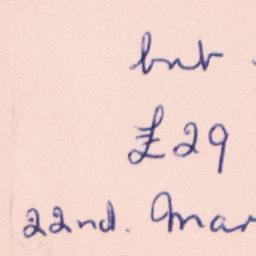 but
£29
22nd. Mar